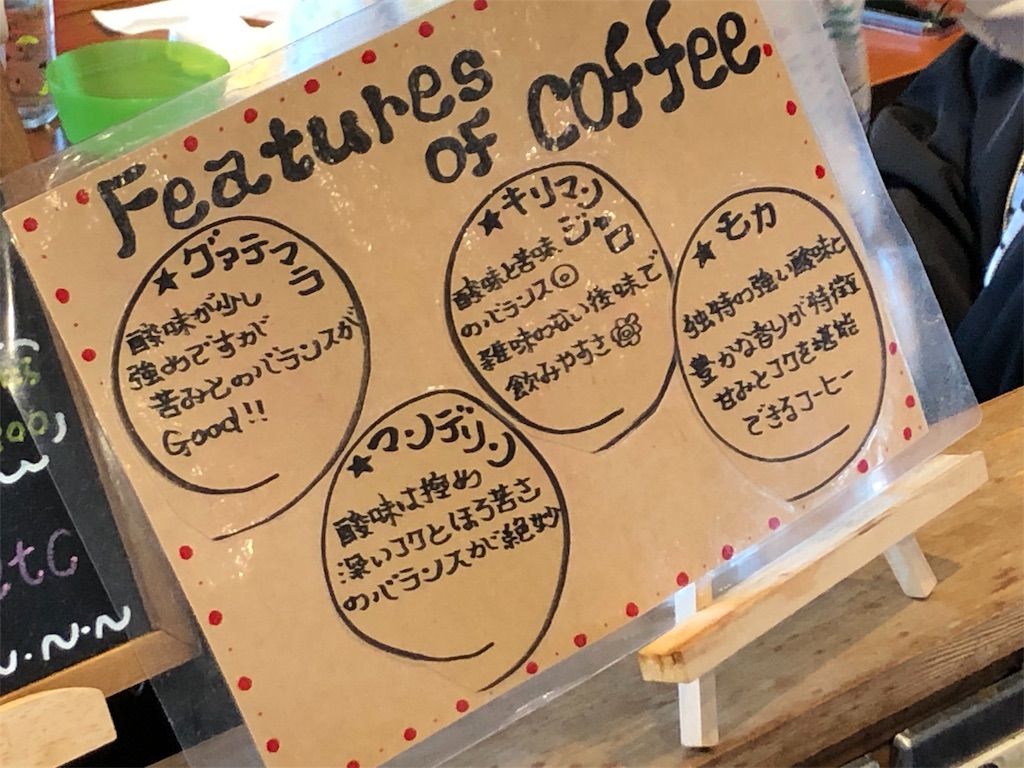 Features
of Coffee
★グァテマラ
酸味が少し
強めですが
苦みとのバランスが
Good!!
★マンデリン
酸味は控め
深いコクとほろ苦さ
のバランスが絶妙
★キリマン
ジャロ
酸味と苦味
のバランス◎
雑味のない後味で
飲みやすさ
★モカ
独特の強い酸味と
豊かな香りが特徴
甘みとコクを堪能
できるコーヒー
tC
N・N